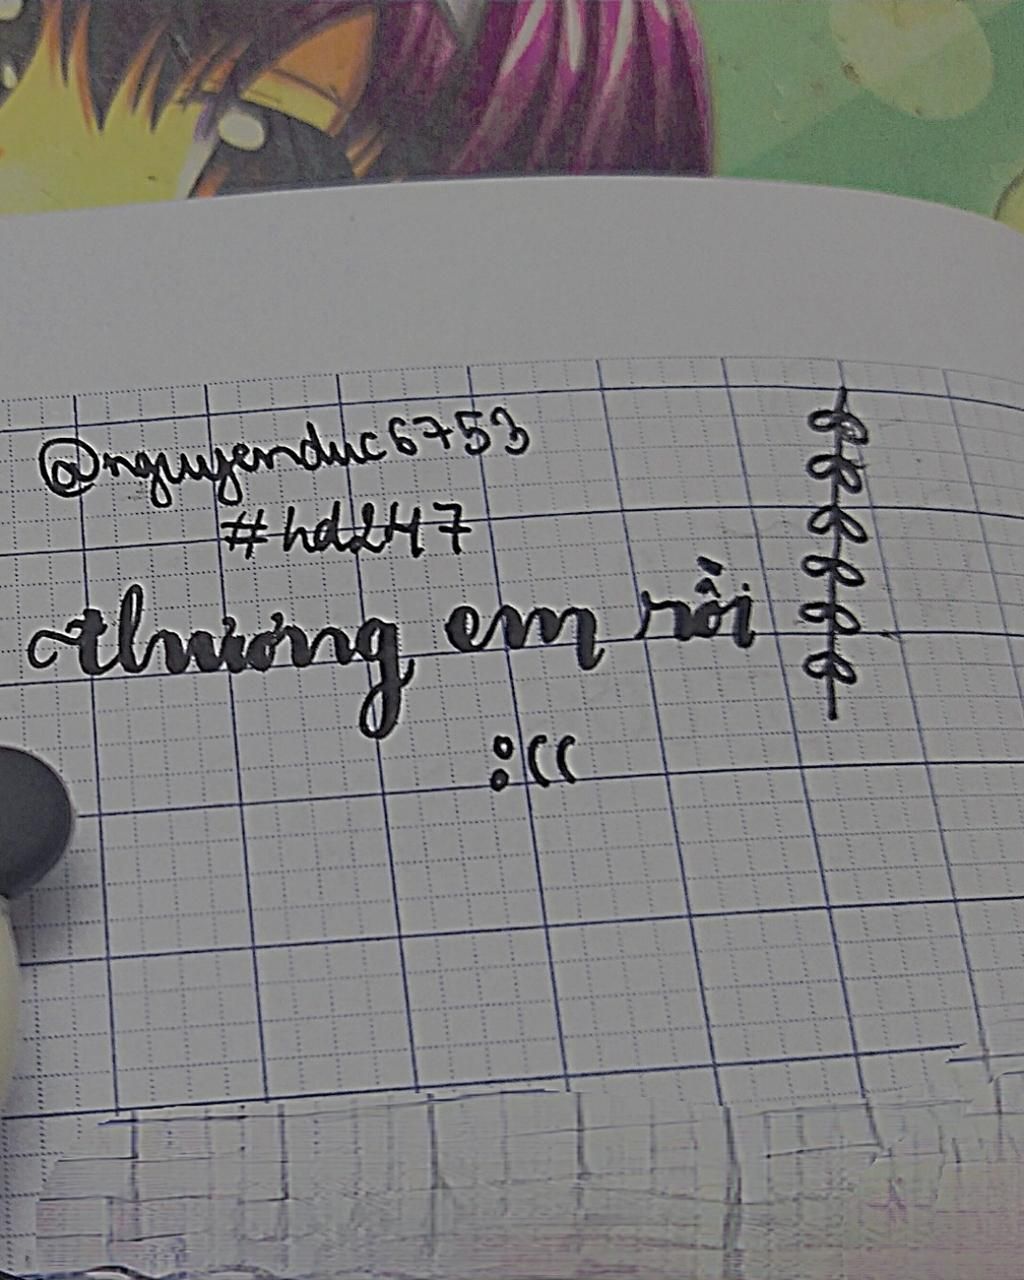 @nguyenduc6753
#hd247
thương em rồi
:((